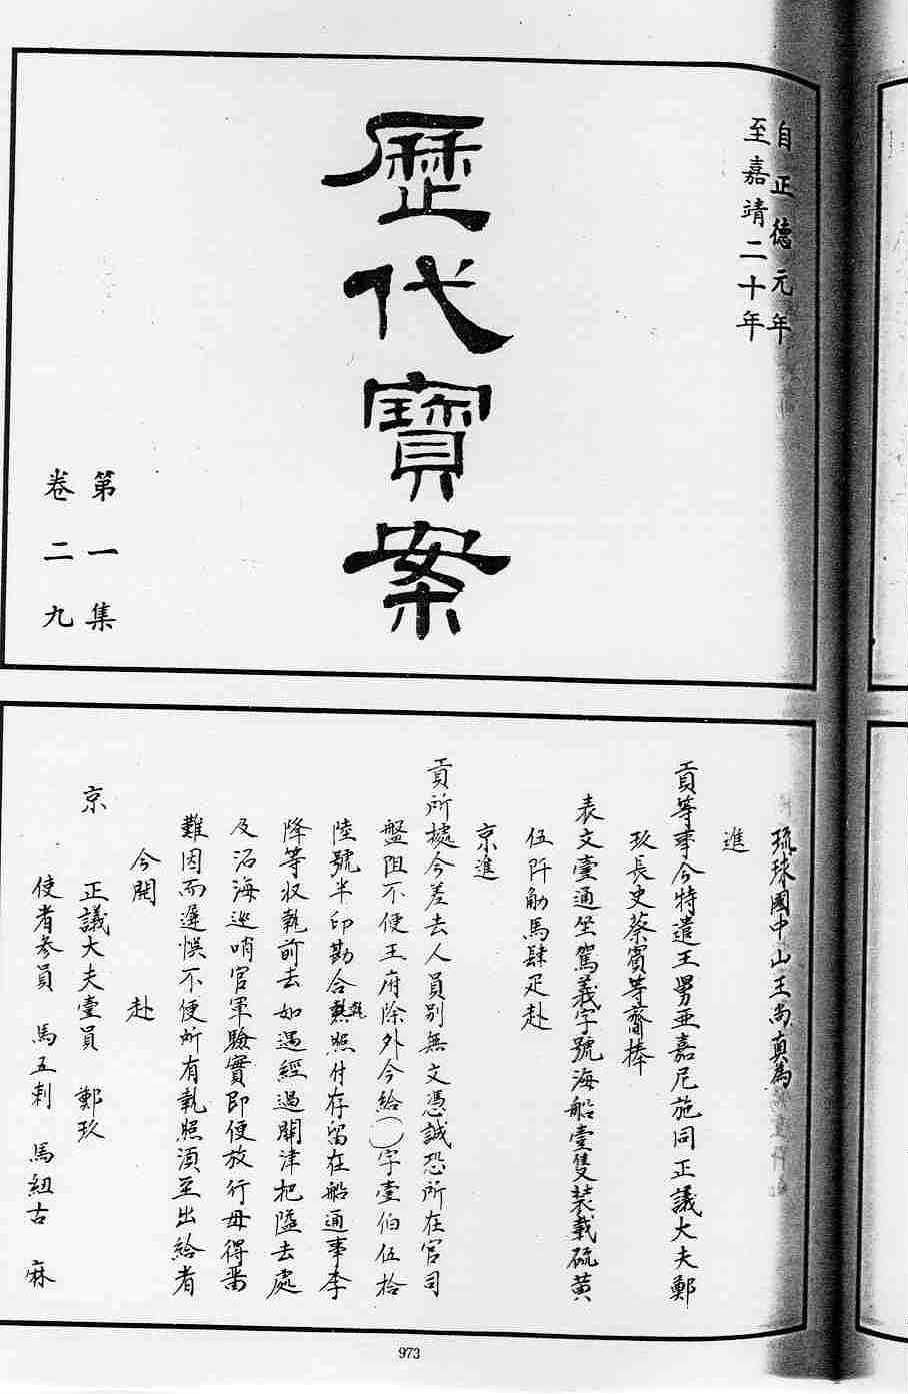 自正德元年
至嘉靖二十年
歷代寶案
第一集
卷二九
琉球國中山王尚真為
進
貢等事今特遣王舅亜嘉尼施同正議大夫鄭
玖長史蔡賓等齎捧
表文壹通坐駕義字號海船壹隻装載硫黄
伍阡觔馬肆疋赴
京進
貢所據今差去人員別無文憑誠恐所在官司
盤阻不便王府除外今給()字壹伯伍拾
陸號半印勘合執照付存留在船通事李
降等収執前去如遇經過關津把隘去處
及沿海巡哨官軍驗實即便放行毋得留
難因而遲悞不便所有執照須至出給者
今開 赴
京 正議大夫壹員 鄭玖
使者参員 馬五剌 馬紐古 麻
973